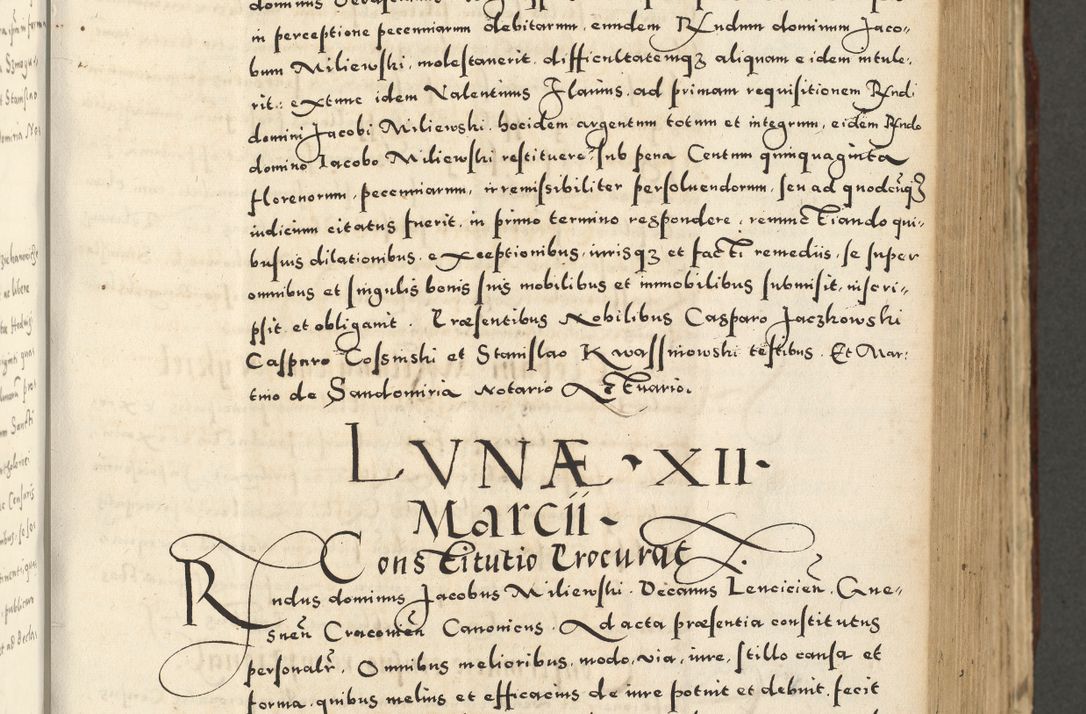 in perceptione pecuniarum debitarum, eundem Rndum dominum Jaco-
bum Miliewski, molestauerit, difficultatemqȝ aliquam eidem intule-
rit: extunc idem Valentinus Flavius, ad primam requisitionem Rndi
domini Jacobi Miliewski, hocidem argentum totum et integrum, eidem Rndo
domino Iacobo Miliewski restituere sub pena Centum quinquaginta
florenorum, pecuniarum, irremissibiliter persoluendorum, seu ad quodcuqȝ
iudicium citatus fuerit, in primo termino respondere, renunctiando qui-
busuis dilationibus, exceptionibus, iurisqȝ et facti remediis, se super
omnibus et singulis bonis suis mobilibus et immobilibus submisit, inscri-
psit, et obligauit. Præsentibus Nobilibus Casparo Jaczkowski
Casparo Cossinski et Stanislao Kwassniowski testibus. Et Mar-
tino de Sandomiria Notario Actuario.
LVNÆ XII
Marcii
Constitutio Procurat
Rndus dominus Jacobus Miliewski, Decanus Lencicień, Gne-
sneń Cracouień Canonicus. Ad acta præsentia constitutus
personalr, Omnibus melioribus, modo, via, iure, stillo causa et
forma, quibus melius et efficacius de iure potuit et debuit, fecit